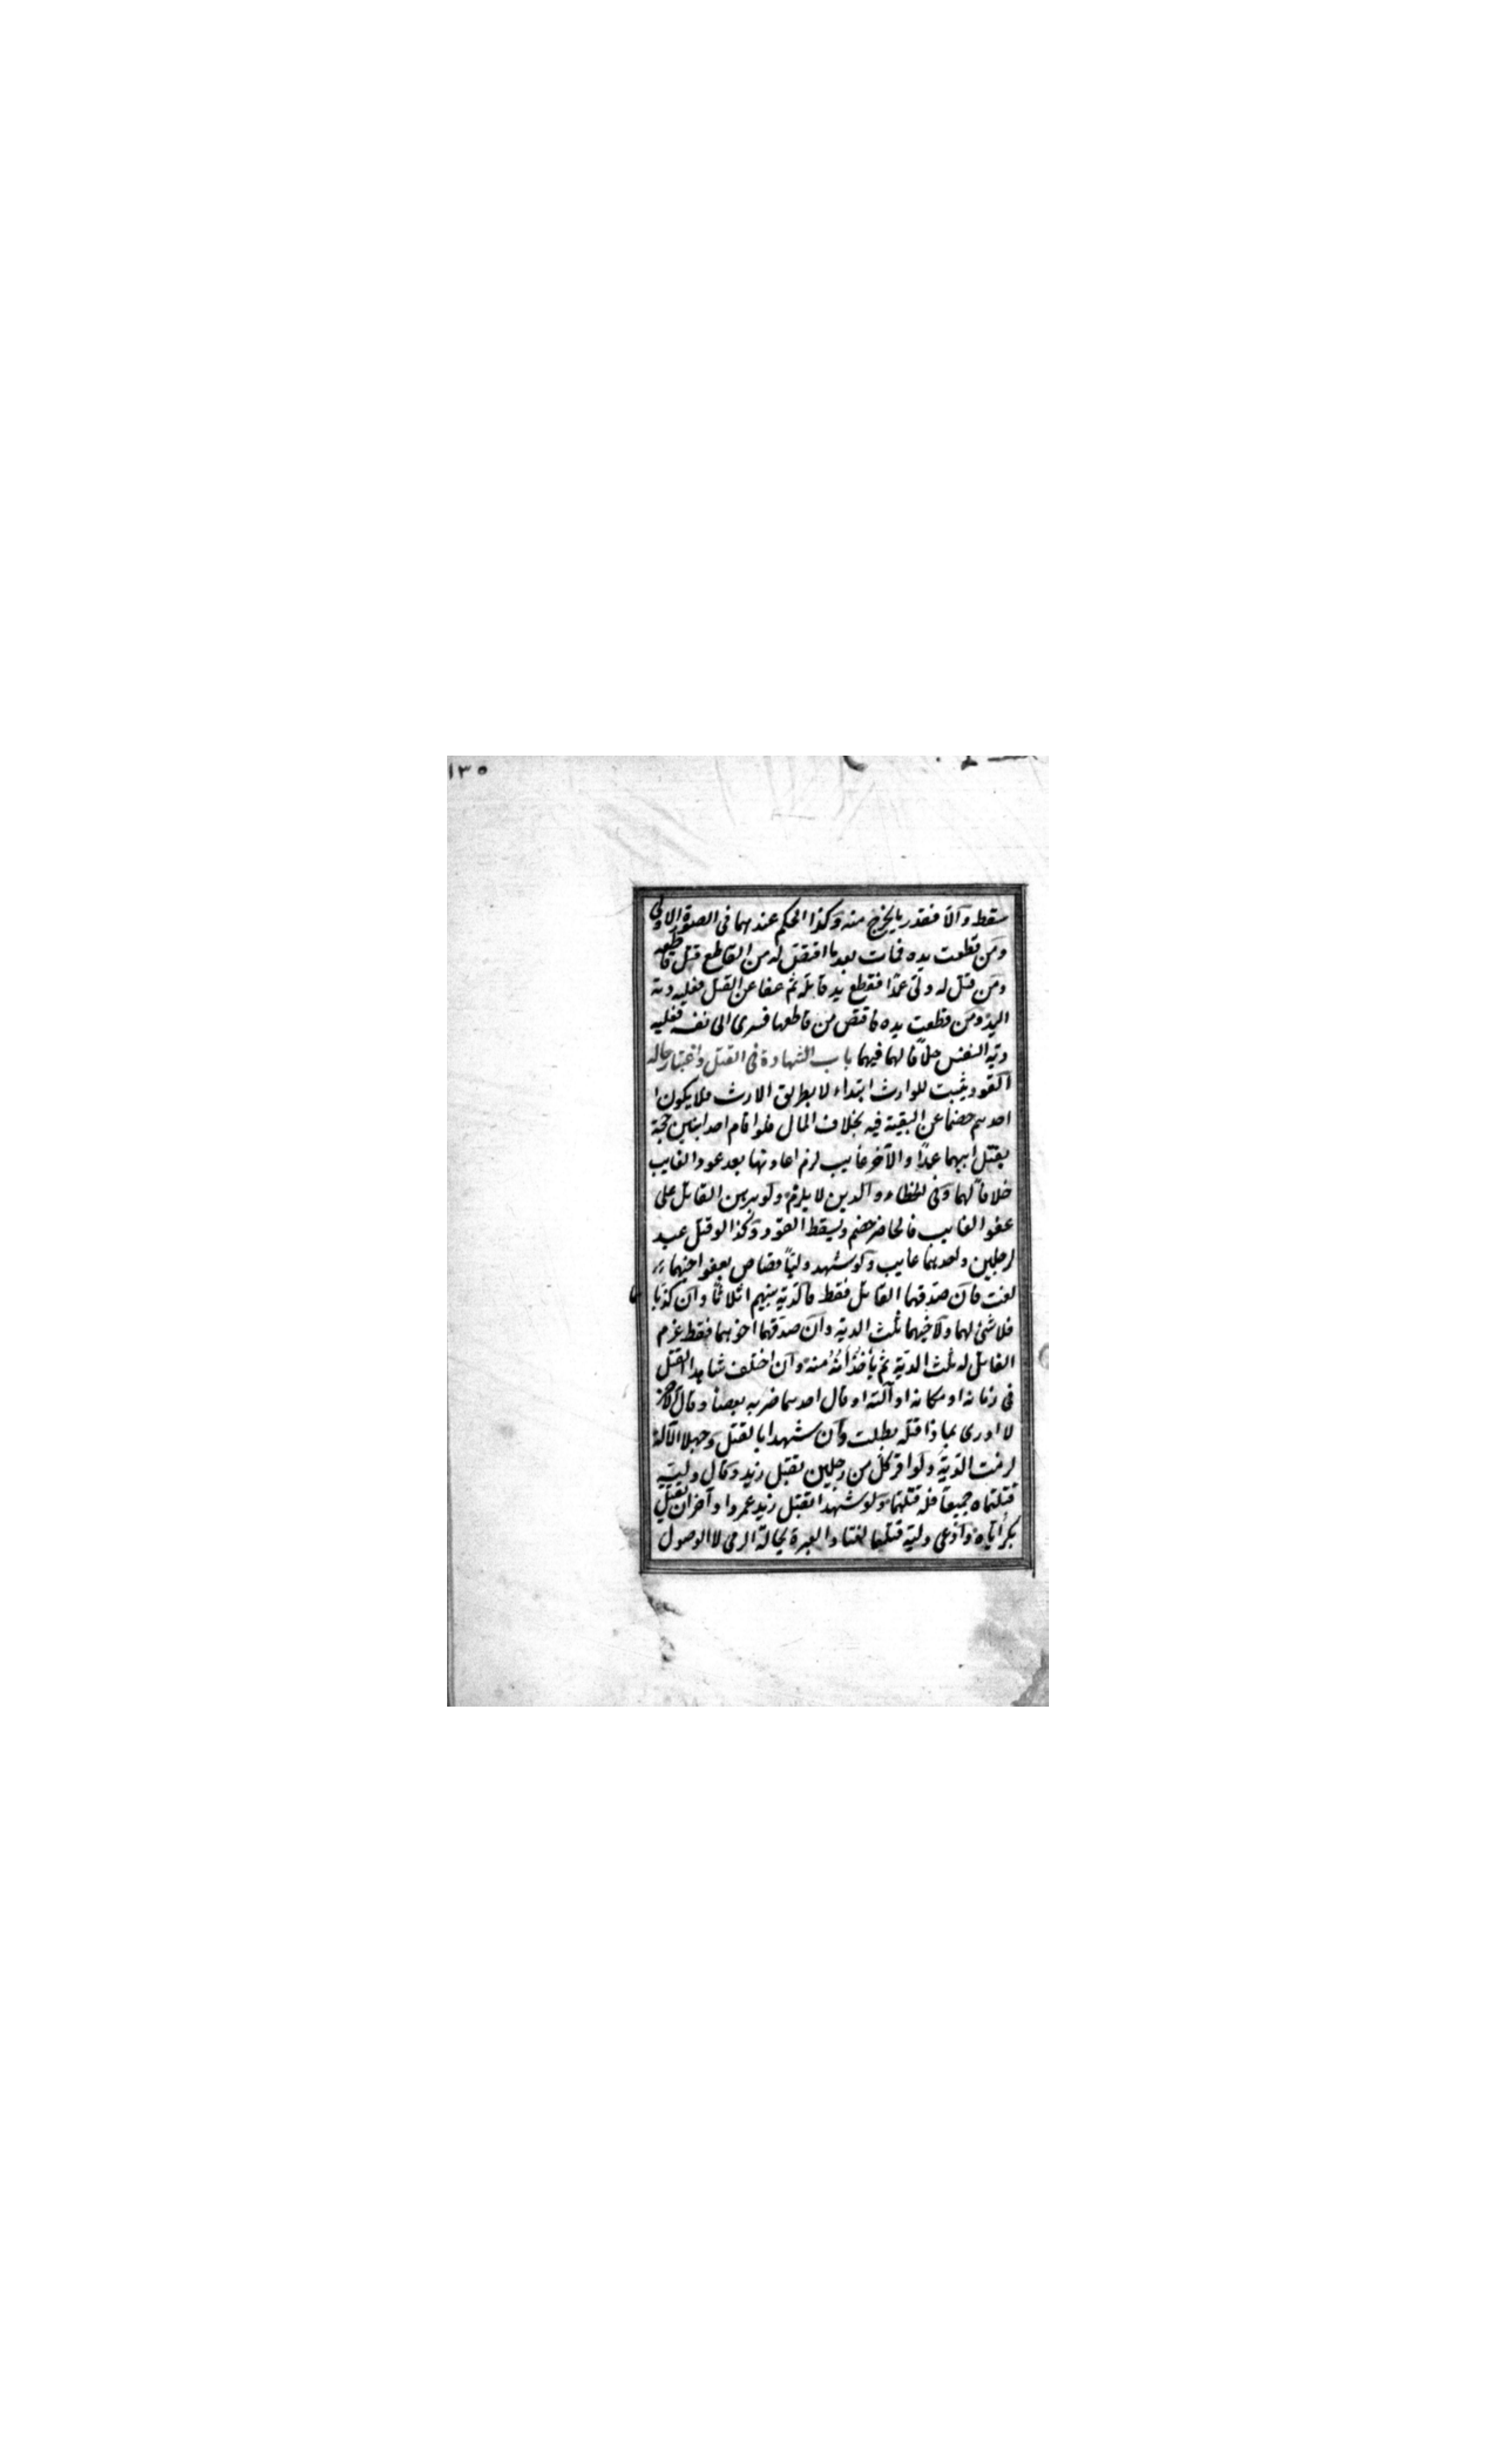 ١٣٥
سقط وآلا فقدر ما يخرج منه وكذا الحكم عندهما فى الصورة الاولى
ومن قطعت يده فمات بعد ما اقتص له من القاطع قتل قاطعه
ومن قتل له ولى عمدًا فقطع يد قاتله ثم عفا عن القتل فعليه دية
اليد ومن قطعت يده فاقتص من قاطعها فسرى الى نفسه فعليه
دية النفس خلافا لهما فيهما باب الشهادة فى القتل واعتبار حاله
القود يثبت للوارث ابتداء لا بطريق الارث فلا يكون
احدهم خصما عن البقية فيه بخلاف المال فلو اقام احد ابنين حجة
بقتل ابيهما عمدًا والآخر غايب لزم اعادتها بعد عود الغايب
خلافا لهما وفى الخطاء والدين لا يلزم ولو برهن القاتل على
عفو الغايب فالحاضر خصم ويسقط القود وكذا لو قتل عبد
لرجلين واحدهما غايب ولو شهد وليا قصاص بعفو اخيهما
لغت فان صدقهما القاتل فقط فالدية بينهم اثلاثا وان كذبا هما
فلا شئ لهما ولاخيهما ثلث الدية وان صدقهما اخوهما فقط غرم
القاتل له ثلث الدية ثم يأخذانه منه وان اختلف شاهدا القتل
فى زمانه او مكانه او آلته او قال احدهما ضربه بعصا وقال الآخر
لا ادرى بماذا قتله بطلت وان شهدا بالقتل وجهلا الآلة
لزمت الدية ولو اقر كل من رجلين بقتل زيد وقال وليه
قتلتماه جميعا فله قتلهما ولو شهدا بقتل زيد عمروا وآخران بقتل
بكر اياه وادعى وليه قتلهما لغتا والعبرة بحالة الرمى لا الوصول